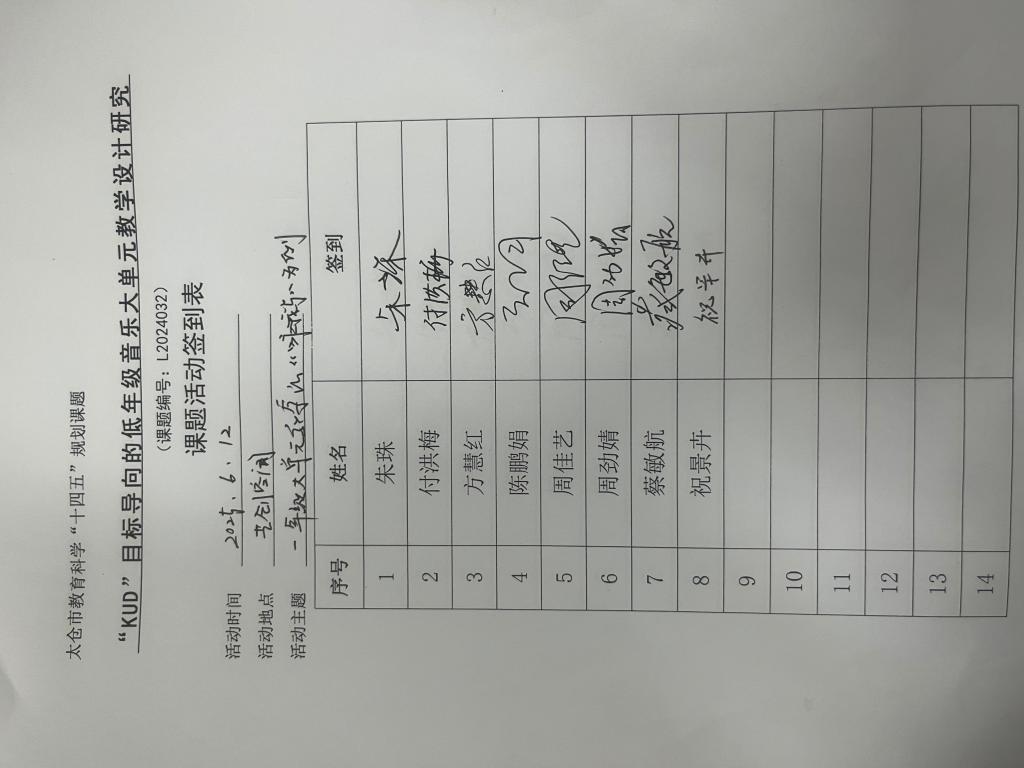 太仓市教育科学“十四五”规划课题
“KUD”目标导向的低年级音乐大单元教学设计研究
（课题编号：L2024032）
课题活动签到表
活动时间 2025.6.12
活动地点 文创空间
活动主题 一年级大单元
序号 姓名 签到
1 朱珠 朱珠
2 付洪梅 付洪梅
3 方慧红 方慧红
4 陈鹏娟
5 周佳艺 周佳艺
6 周劲婧 周劲婧
7 蔡敏航 蔡敏航
8 祝景卉 祝景卉
9
10
11
12
13
14